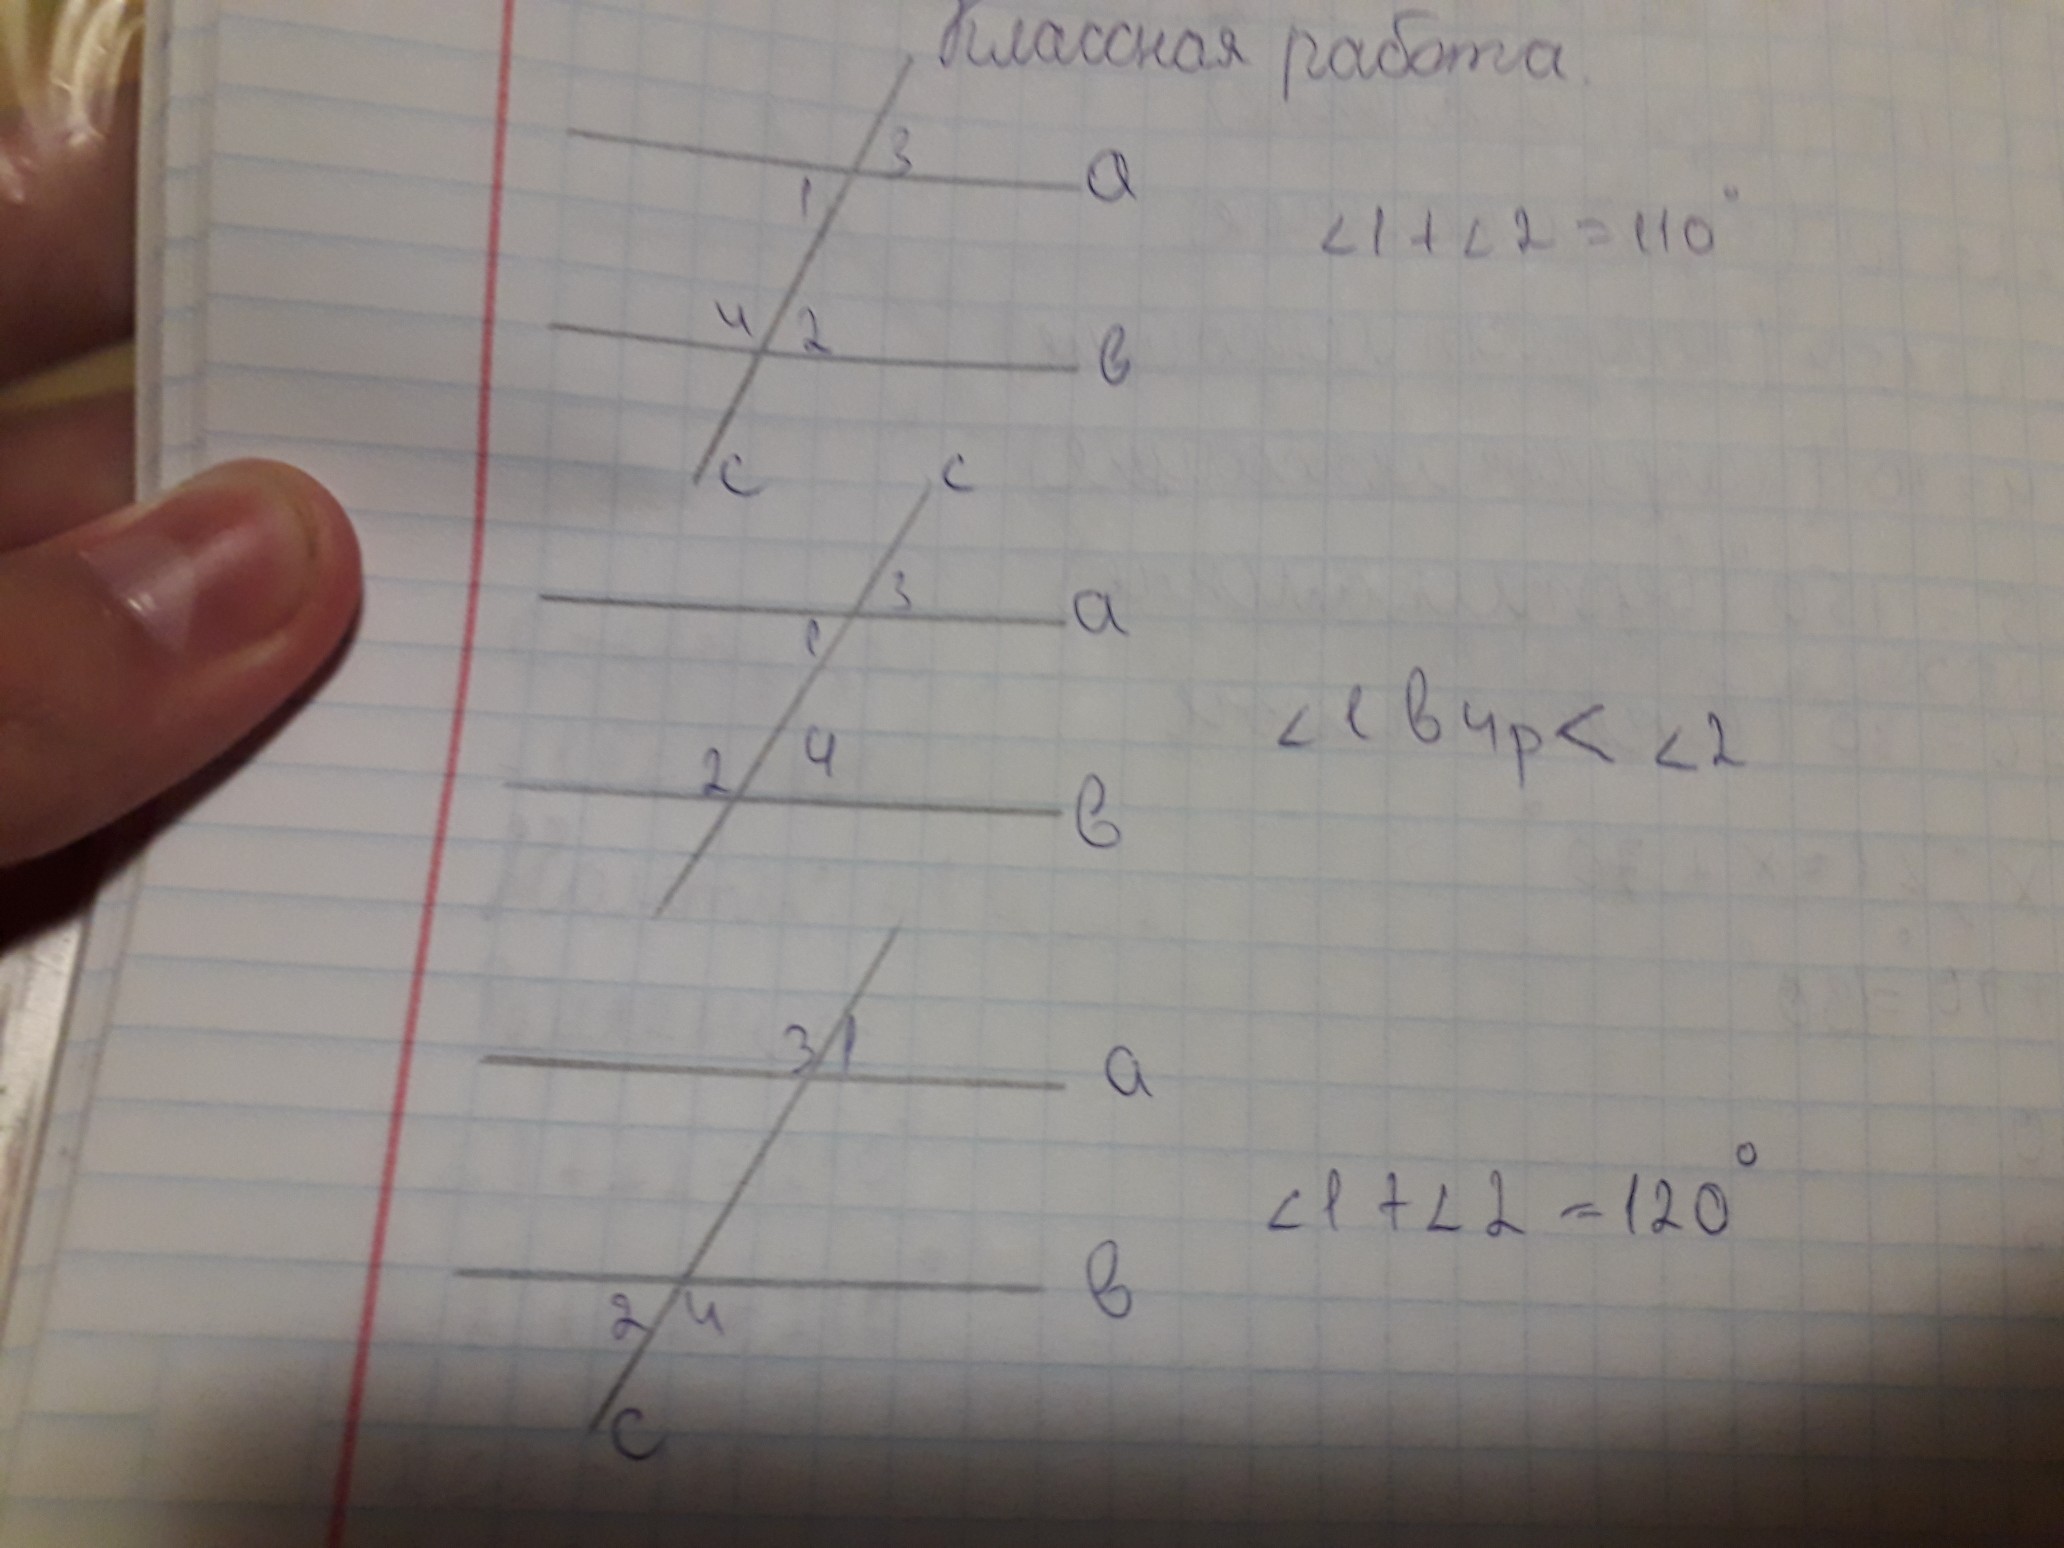 Классная работа.
3
1
a
∠1+∠2=110°
4 2
в
c
c
3
a
1
∠1 в 4р< ∠2
4
2
в
3 1
a
∠1+∠2=120°
в
2 4
c